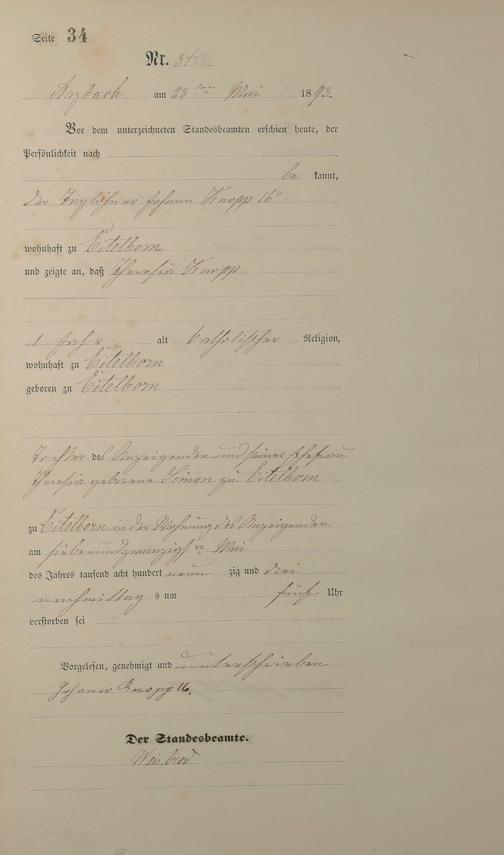 Seite 34
Nr. 34
Arzbach am 28 ten Mai 1893.
Vor dem unterzeichneten Standesbeamten erschien heute, der
Persönlichkeit nach
be kannt,
der Taglöhner Johann Knopp 16r
wohnhaft zu Eitelborn
und zeigte an, daß Theresia Knopp
1 Jahr alt katholischer Religion,
wohnhaft zu Eitelborn
geboren zu Eitelborn
Tochter des Anzeigenden und seiner Ehefrau
Theresia geborene Simon zu Eitelborn
zu Eitelborn in der Wohnung des Anzeigenden
am siebenundzwanzigsten Mai
des Jahres tausend acht hundert neun zig und drei
nachmittag s um fünf Uhr
verstorben sei
Vorgelesen, genehmigt und unterschrieben
Johann Knopp 16.
Der Standesbeamte.